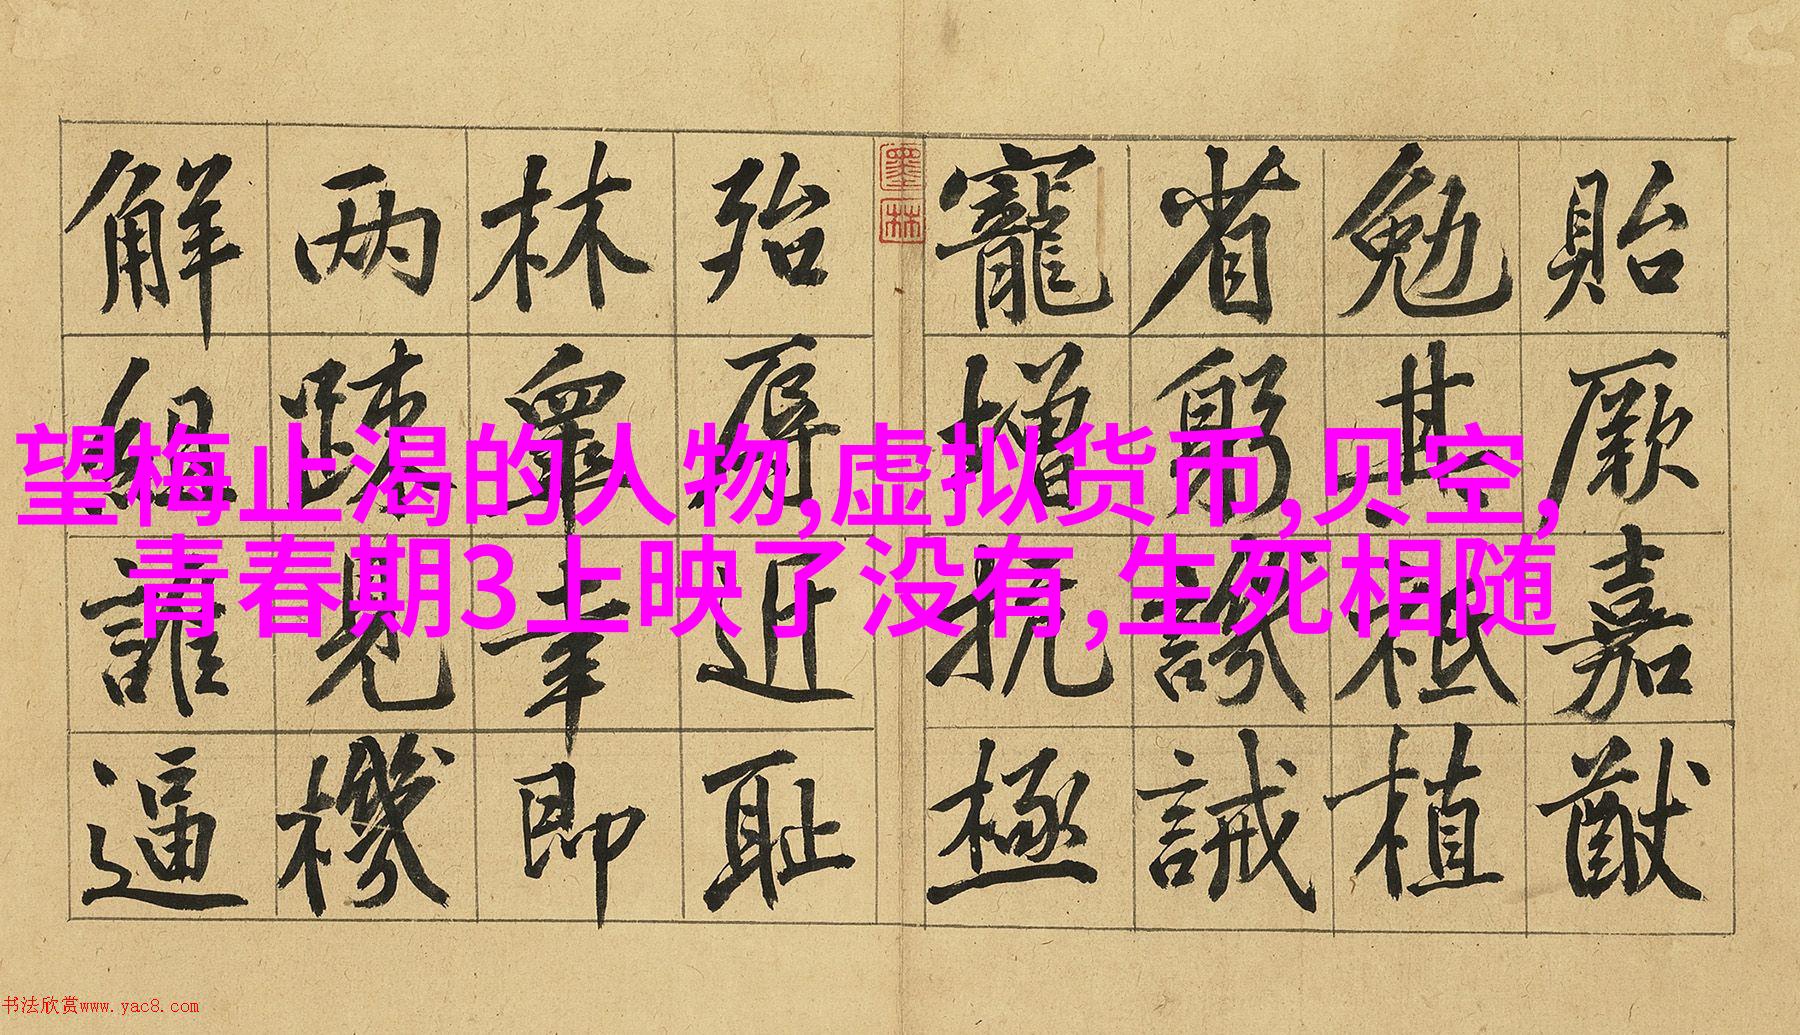 貽厥嘉猷
勉其祗植
省躬譏誡
寵增抗極
墨林
殆辱近耻
林皐幸即
两疎見機
解組誰逼
望梅止渴的人物,虚拟货币,贝空,
青春期3上映了没有,生死相随
书法欣赏www.yac8.com